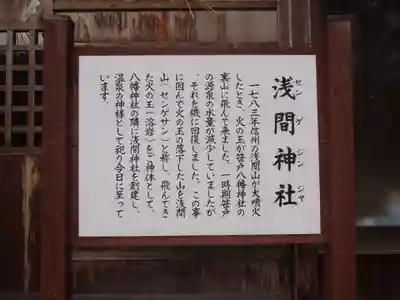 浅間神社
センゲジンジャ
一七八三年信州の浅間山が大噴火
したとき、火の玉が笹戸八幡神社の
裏山に飛んで来ました。一時期笹戸
の源泉の水量が減少していましたが
それを機に回復しました。この事
に因んで火の玉の落下した山を浅間
山(センゲサン)と称し、飛んできた
た火の玉(溶岩)をご神体として、
八幡神社の隣に浅間神社を創建し、
温泉の神様として祀り今日に至って
います。